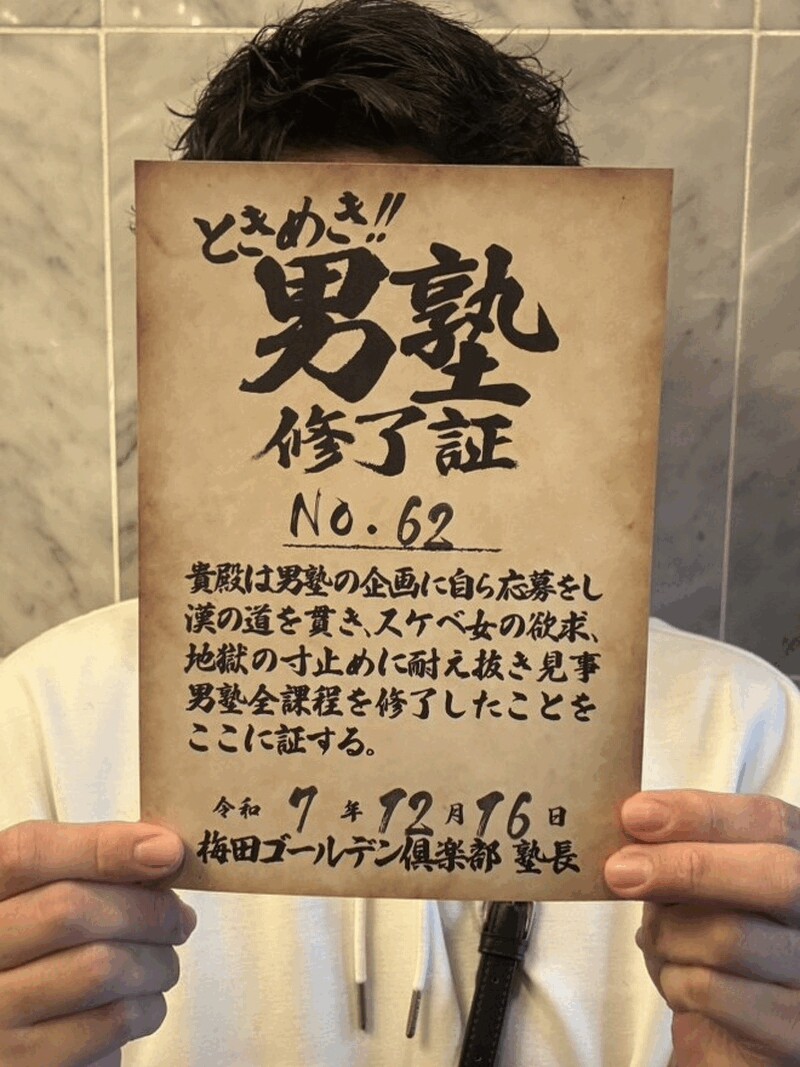 ときめき!!
男塾
修了証
No. 62
貴殿は男塾の企画に自ら応募をし
漢の道を貫き、スケベ女の欲求、
地獄の寸止めに耐え抜き見事
男塾全課程を修了したことを
ここに証する。
令和 7 年 12 月 16 日
梅田ゴールデン倶楽部 塾長